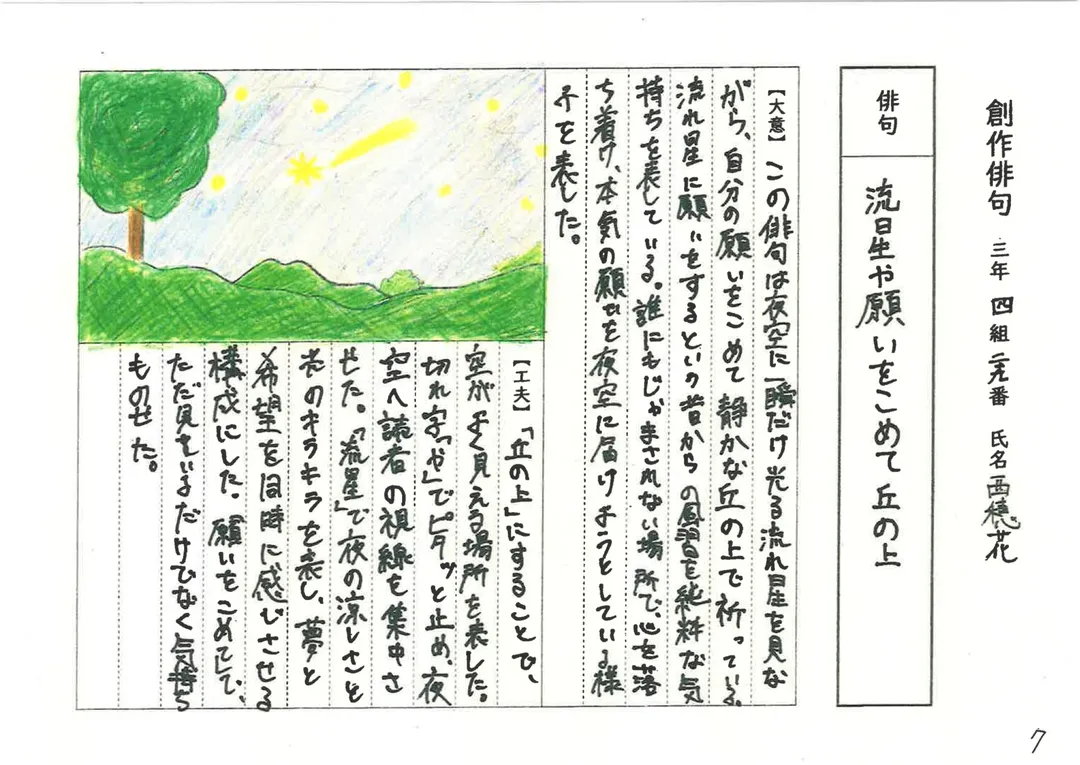 創作俳句 三年 四組 番 氏名 西穂花
俳句
流星や願いをこめて丘の上
【大意】この俳句は夜空に一瞬だけ光る流れ星を見な
がら、自分の願いをこめて静かな丘の上で祈っている。
流れ星に願いをするという昔からの風習を純粋な気
持ちを表している。誰にもじゃまされない場所で、心を落
ち着け、本気の願いを夜空に届けようとしている様
子を表した。
【工夫】「丘の上」にすることで、
空がよく見える場所を表した。
切れ字「や」でピタッと止め、夜
空へ読者の視線を集中さ
せた。「流星」で夜の涼しさと
光のキラキラを表し、夢と
希望を同時に感じさせる
構成にした。「願いをこめて」で、
ただ見ているだけでなく気持ち
ものせた。
7